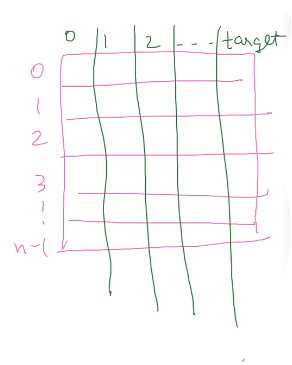 0 1 2 --- target
0
1
2
3
n-1